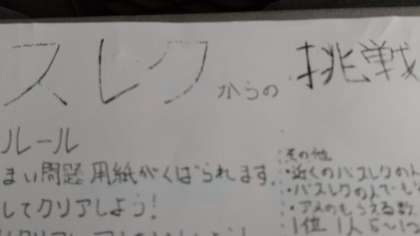 スレクからの挑戦
ルール
まい問題用紙がくばられます。
してクリアしよう!
その他
・近くのバスレクの人
・バスレクの人でも
・アメのもらえる数
1位 1人5〜